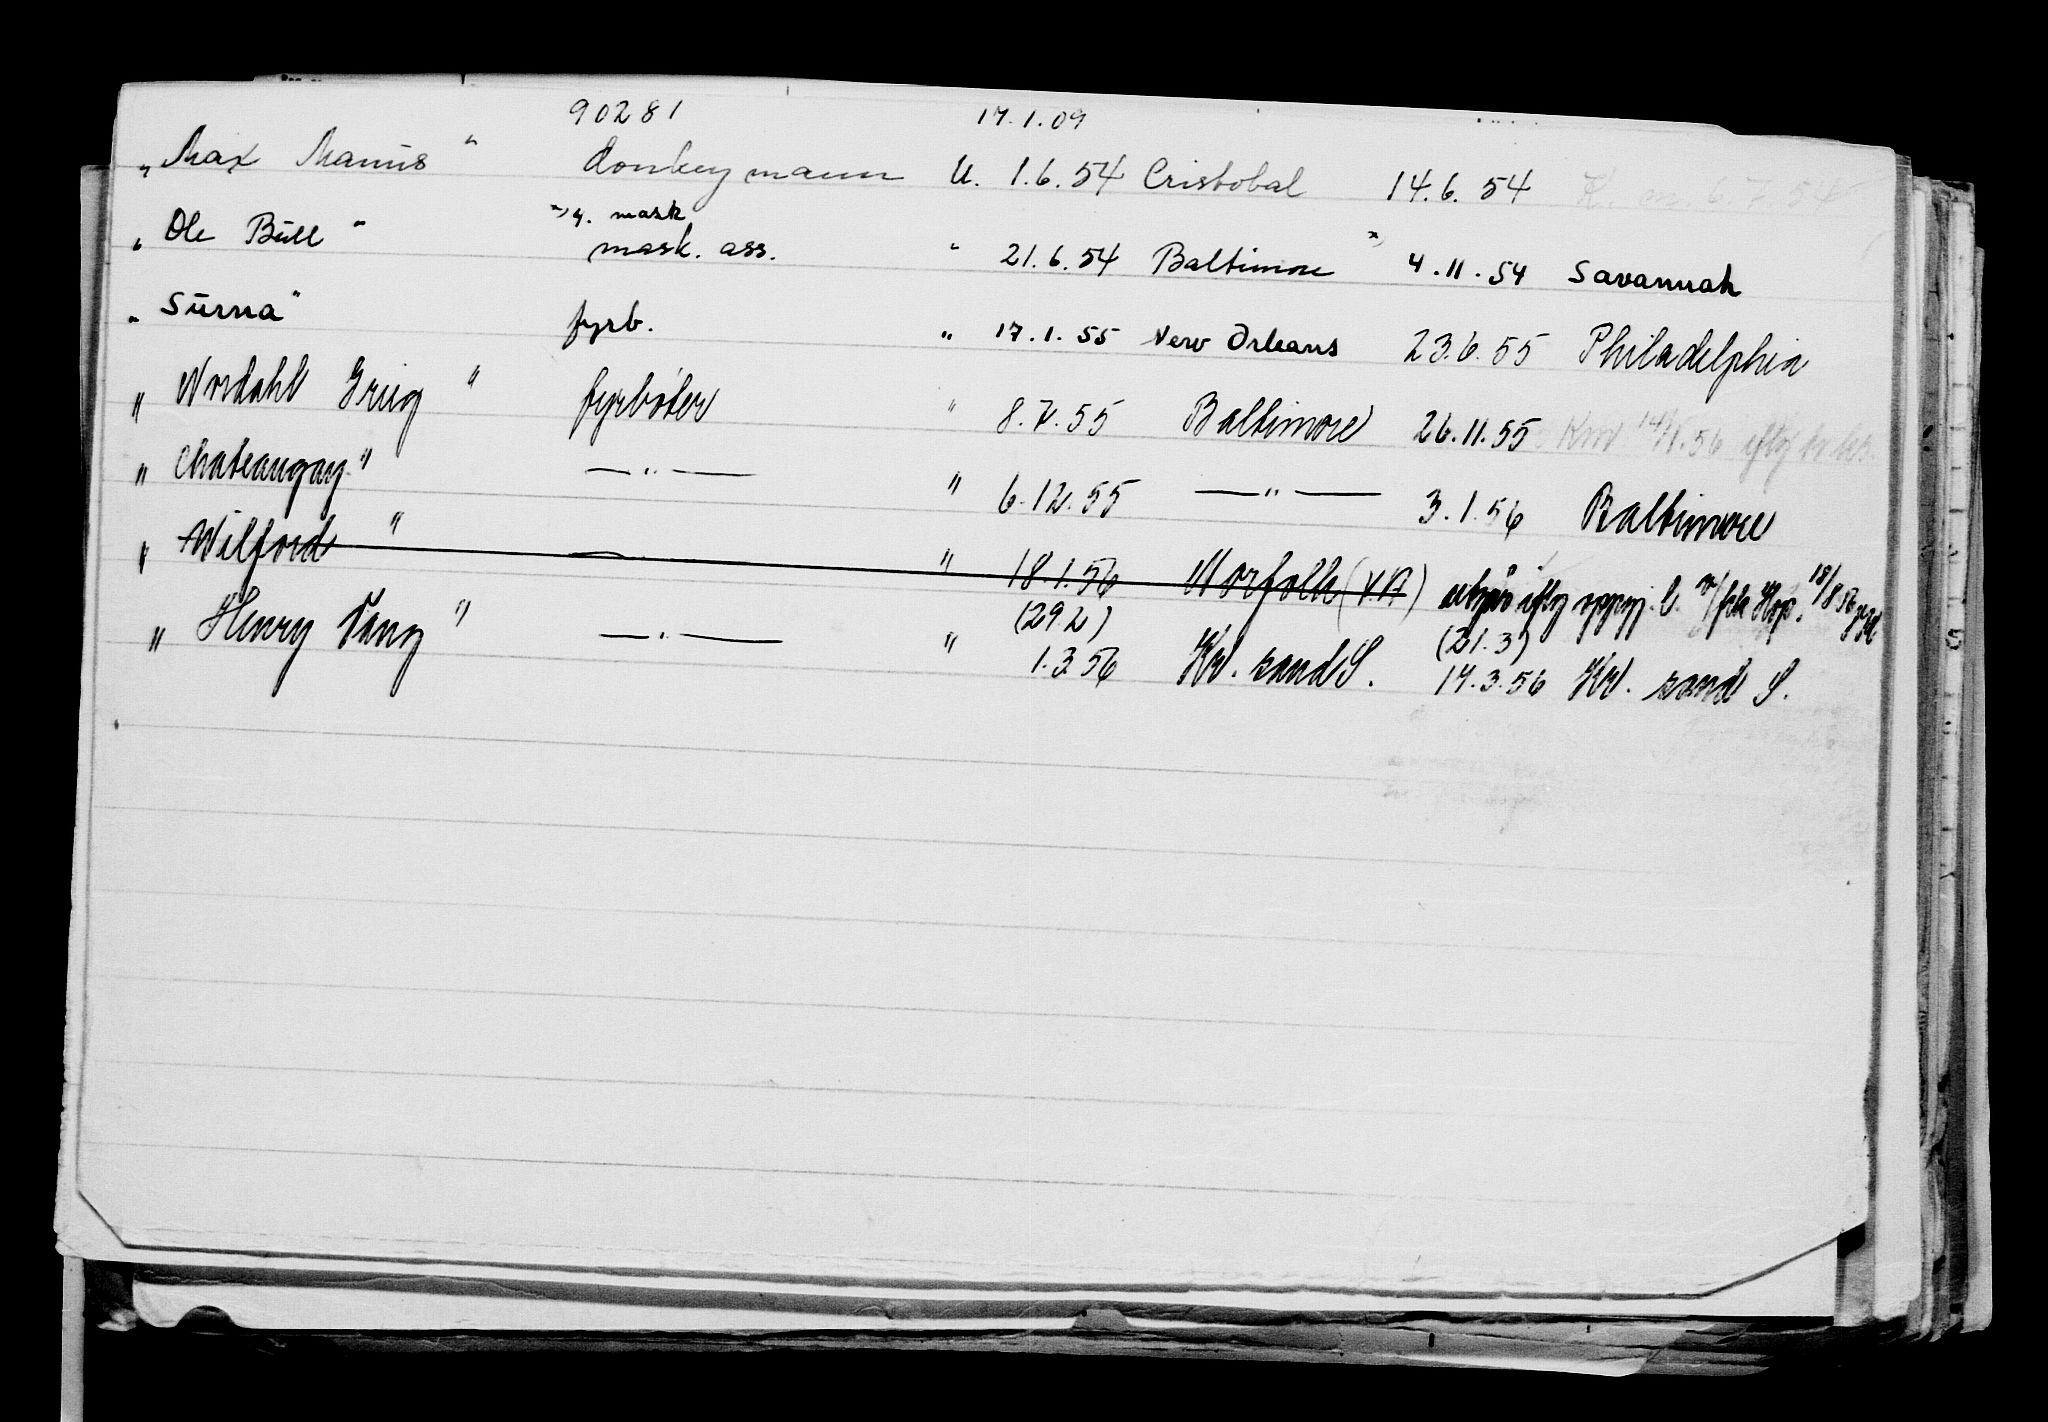 90281 17.1.09
„ Max Manus " donkeymann U. 1.6.54 Cristobal 14.6.54 6.7.54
„ Ole Bull " mask
mask. ass. " 21.6.54 Baltimore 4.11.54 Savannah
„ Surna " fyrb. " 17.1.55 New Orleans 23.6.55 Philadelphia
„ Nordahl Grieg " fyrbøter " 8.7.55 Baltimore 26.11.55
„ Chateaugay " —"— " 6.12.55 —"— 3.1.56 Baltimore
„ Wilford " " 18.1.56 Norfolk (VA) iflg
(29.2) (21.3)
„ Henry Tang " —"— " 1.3.56 Kr. sand S. 17.3.56 Kr. sand S.